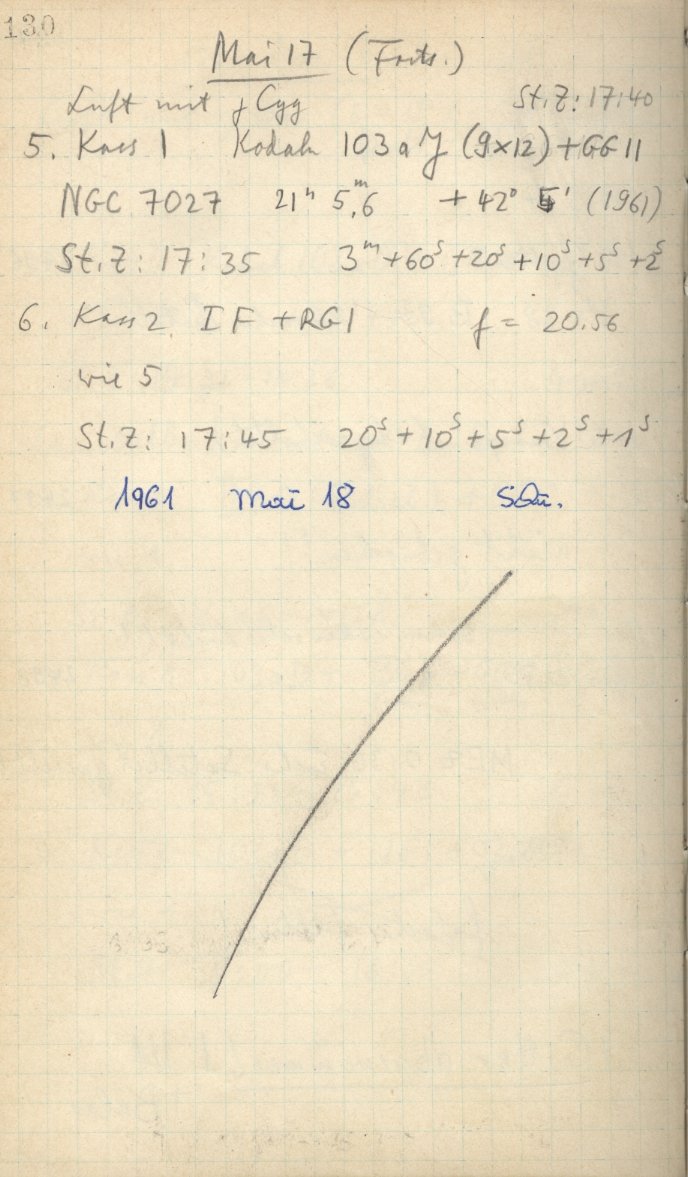 130
Mai 17 (Forts.)
Luft mit γ Cyg St.Z: 17:40
5. Kass 1 Kodak 103aJ (9x12) + GG 11
NGC 7027 21ʰ 5,ᵐ6 + 42° 5' (1961)
St.Z: 17:35 3ᵐ+60ˢ+20ˢ+10ˢ+5ˢ+2ˢ
6. Kass 2 IF + RG1 f = 20.56
wie 5
St.Z: 17:45 20ˢ+10ˢ+5ˢ+2ˢ+1ˢ
1961 Mai 18